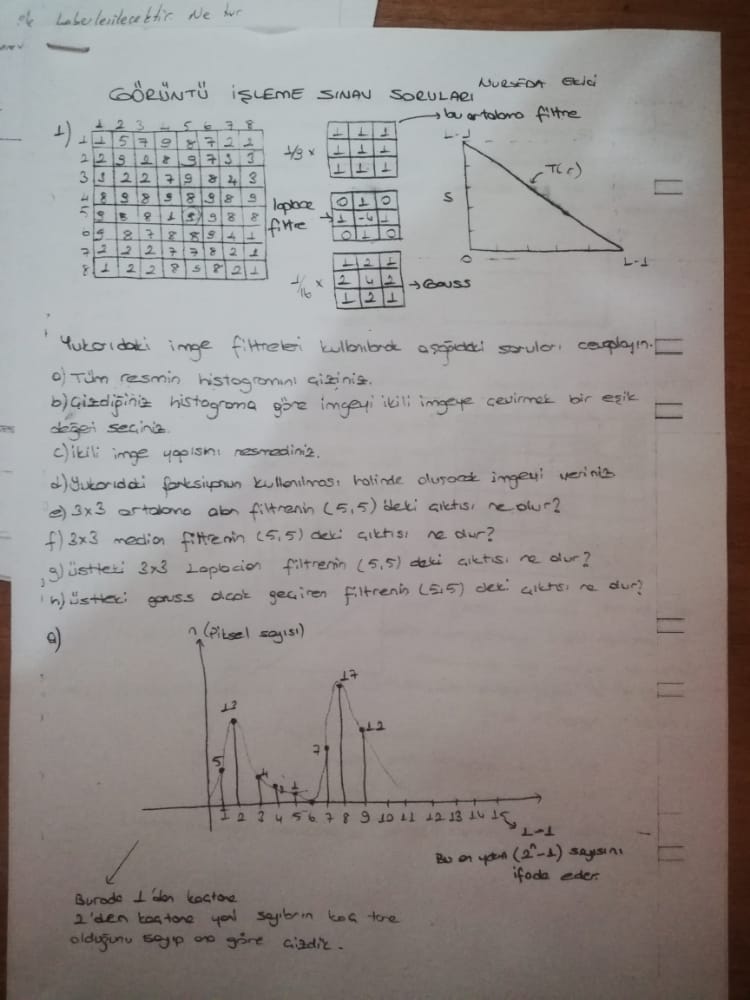 haberlenilecektir. Ne tür
NURSEDA EKİCİ
GÖRÜNTÜ İŞLEME SINAV SORULARI
1)
1 2 3 4 5 6 7 8
1 1 5 7 9 8 7 2 2
3 3 2 2 7 9 8 4 3
4 8 9 8 9 8 9 8 9
7 2 2 2 7 7 8 2 1
8 1 2 2 8 9 8 2 1
bu ortalama filtre
1/9 ×
1 1 1
1 1 1
1 1 1
laplace
filtre
0 1 0
1 -4 1
0 1 0
1/16 ×
1 2 1
2 4 2
1 2 1
Gauss
L-1
T(r)
S
0
L-1
Yukarıdaki imge filtreleri kullanılarak aşağıdaki soruları cevaplayın.
a) Tüm resmin histogramını çiziniz.
b) Çizdiğiniz histograma göre imgeyi ikili imgeye çevirmek bir eşik
değeri seçiniz.
c) ikili imge yapısını resmediniz.
d) Yukarıdaki fonksiyonun kullanılması halinde oluşacak imgeyi veriniz
e) 3x3 ortalama alan filtrenin (5,5)'deki çıktısı ne olur?
f) 3x3 median filtrenin (5,5) deki çıktısı ne olur?
g) üstteki 3x3 Laplacian filtrenin (5,5) deki çıktısı ne olur?
h) üstteki gauss alçak geçiren filtrenin (5,5) deki çıktısı ne olur?
a)
n (Piksel sayısı)
5 13 4 1 7 17 12
1 2 3 4 5 6 7 8 9 10 11 12 13 14 15
L-1
Bu en yüksek (2ⁿ-1) sayısını
ifade eder.
Burada 1'den kaç tane
2'den kaç tane yani sayıların kaç tane
olduğunu sayıp ona göre çizdik.